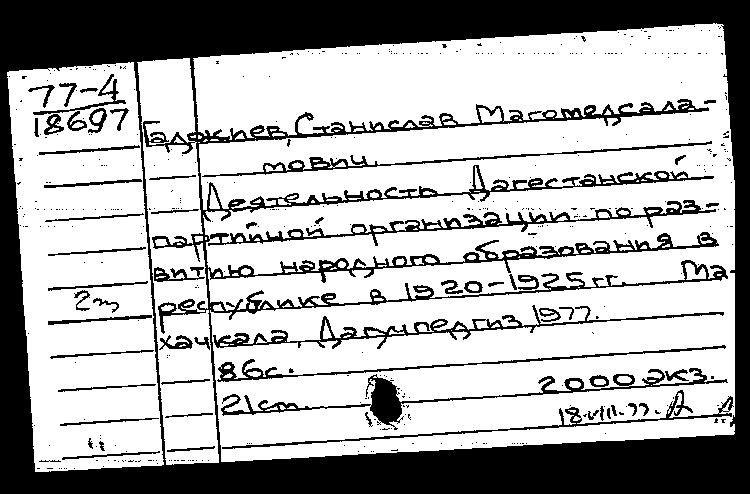 77-4
18697
Гаджиев, Станислав Магомедсала-
мович.
Деятельность Дагестанской
партийной организации по раз-
витию народного образования в
республике в 1920-1925 гг. Ма-
хачкала, Дагучпедгиз, 1977.
86с.
21 cm. 2000 экз.
18.VIII.77.